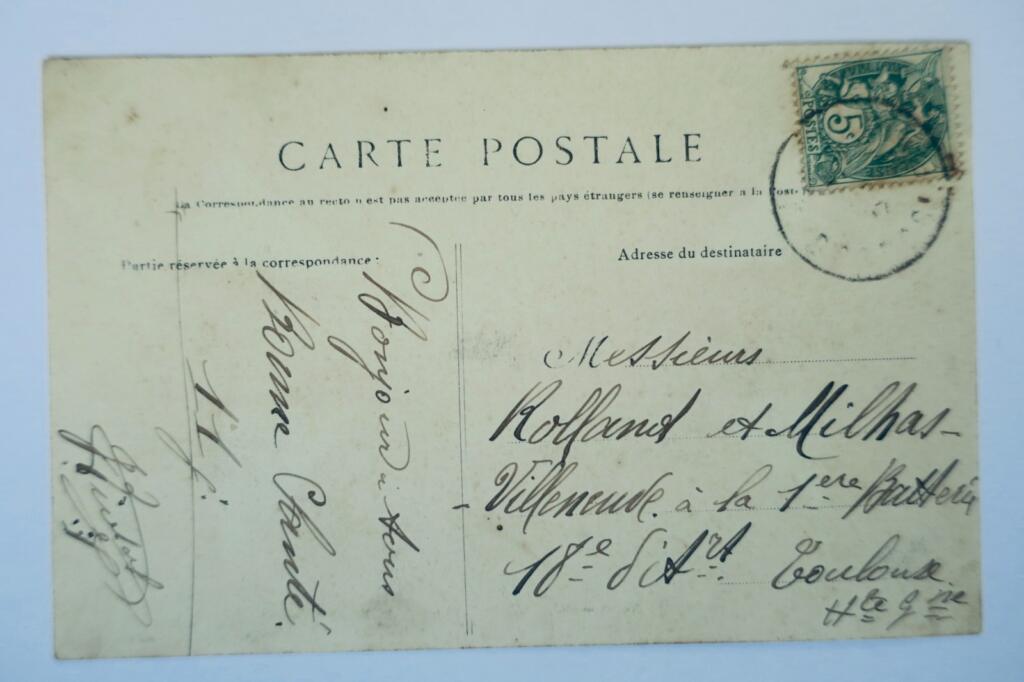 CARTE POSTALE
La Correspondance au recto n'est pas acceptée par tous les pays étrangers (se renseigner a la Poste)
Partie réservée à la correspondance :
Adresse du destinataire
5c
POSTES
Bonjour à tous
Bonne Santé
Messieurs
Rolland et Milhas-
Villeneuve à la 1ere Batterie
18e d'Art Toulouse
Hte Gne